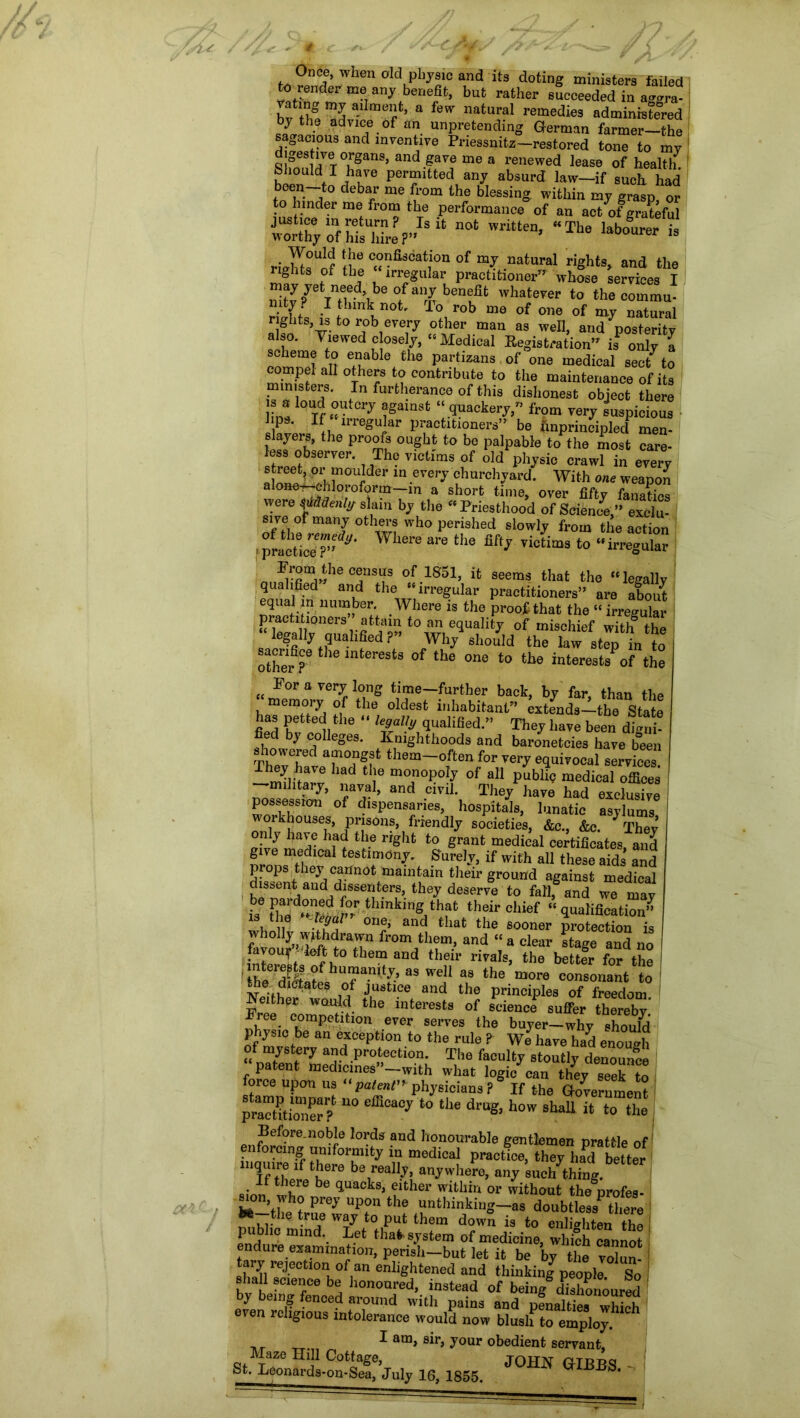 Once, when old physic and its doting ministers failed
to render me any benefit, but rather succeeded in aggra-
vating my ailment, a few natural remedies administered
by the advice of an unpretending German farmer—the
sagacious and inventive Priessnitz—restored tone to my
digestive organs, and gave me a renewed lease of health.
Should I have permitted any absurd law—if such had
been—to debar me from the blessing within my grasp, or
to hinder me from the performance of an act of grateful
justice in return? Is it not written, “The labourer is
worthy of his hire?”
Would the confiscation of my natural rights, and the
rights of the “irregular practitioner” whose services I
may yet need, be of any benefit whatever to the commu-
nity? I think not. To rob me of one of my natural
rights, is to rob every other man as well, and posterity
also. Viewed closely, “Medical Registration” is only a
scheme to enable the partizans of one medical sect to
compel all others to contribute to the maintenance of its
ministers. In furtherance of this dishonest object there
is a loud outcry against “quackery,” from very suspicious
lips. If “irregular practitioners” be unprincipled men-
slayers, the proofs ought to be palpable to the most care-
less observer. The victims of old physic crawl in every
street, or moulder in every churchyard. With one weapon
alone—chloroform—in a short time, over fifty fanatics
were suddenly slain by the “Priesthood of Science,” exclu-
sive of many others who perished slowly from the action
of the remedy. Where are the fifty victims to “irregular
practice?”
From the census of 1851, it seems that the “legally
qualified” and the “irregular practitioners” are about
equal in number. Where is the proof that the “irregular
practitioners” attain to an equality of mischief with the
“legally qualified?” Why should the law step in to
sacrifice the interests of the one to the interests of the
other?
For a very long time—further back, by far, than the
“memory of the oldest inhabitant” extends—the State
has petted the “legally qualified.” They have been digni-
fied by colleges. Knighthoods and baronetcies have been
showered amongst them—often for very equivocal services.
They have had the monopoly of all public medical offices
—military, naval, and civil. They have had exclusive
possession of dispensaries, hospitals, lunatic asylums,
workhouses, prisons, friendly societies, &c., &c. They
only have had the right to grant medical certificates, and
give medical testimony. Surely, if with all these aids and
props they cannot maintain their ground against medical
dissent and dissenters, they deserve to fall, and we may
be pardoned for thinking that their chief “qualification”
is the “legal” one, and that the sooner protection is
wholly withdrawn from them, and “a clear stage and no
favour” left to them and their rivals, the better for the
interests of humanity, as well as the more consonant to
the dictates of justice and the principles of freedom.
Neither would the interests of science suffer thereby.
Free competition ever serves the buyer—why should
physic be an exception to the rule? We have had enough
of mystery and protection. The faculty stoutly denounce
“patent medicines”—with what logic can they seek to
force upon us “patent” physicians? If the Government
stamp impart no efficacy to the drug, how shall it to the
practitioner?
Before noble lords and honourable gentlemen prattle of
enforcing uniformity in medical practice, they had better
inquire if there be really, anywhere, any such thing.
If there be quacks, either within or without the profes-
sion, who prey upon the unthinking—as doubtless there
be—the true way to put them down is to enlighten the
public mind. Let that system of medicine, which cannot
endure examination, perish—but let it be by the volun-
tary rejection of an enlightened and thinking people. So
shall science be honoured, instead of being dishonoured
by being fenced around with pains and penalties which
even religious intolerance would now blush to employ.
I am, sir, your obedient servant,
JOHN GIBBS.
Maze Hill Cottage,
St. Leonards-on-Sea, July 16, 1855.